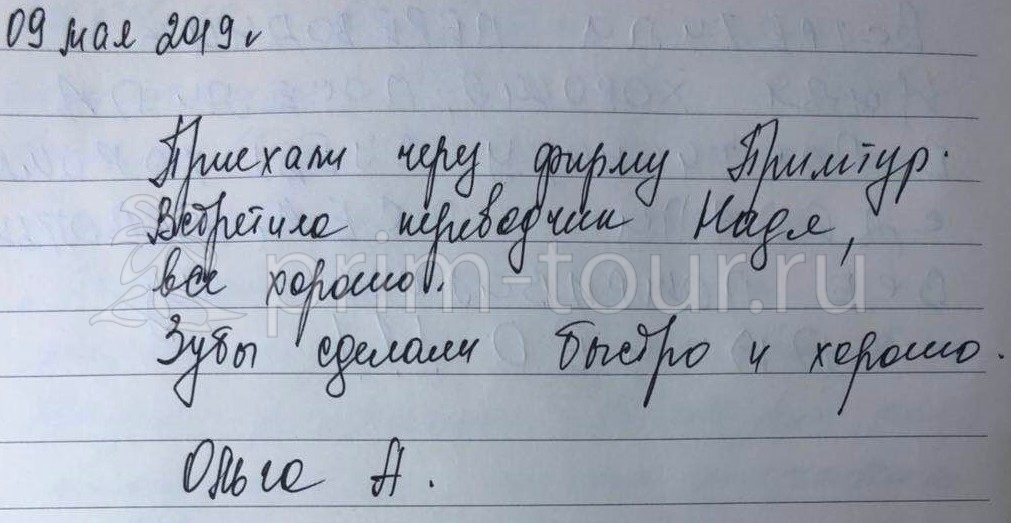 09 мая 2019г
Приехали через фирму Примтур.
Встретила переводчик Надя,
все хорошо.
prim-tour.ru
Зубы сделали быстро и хорошо.
Ольга А.